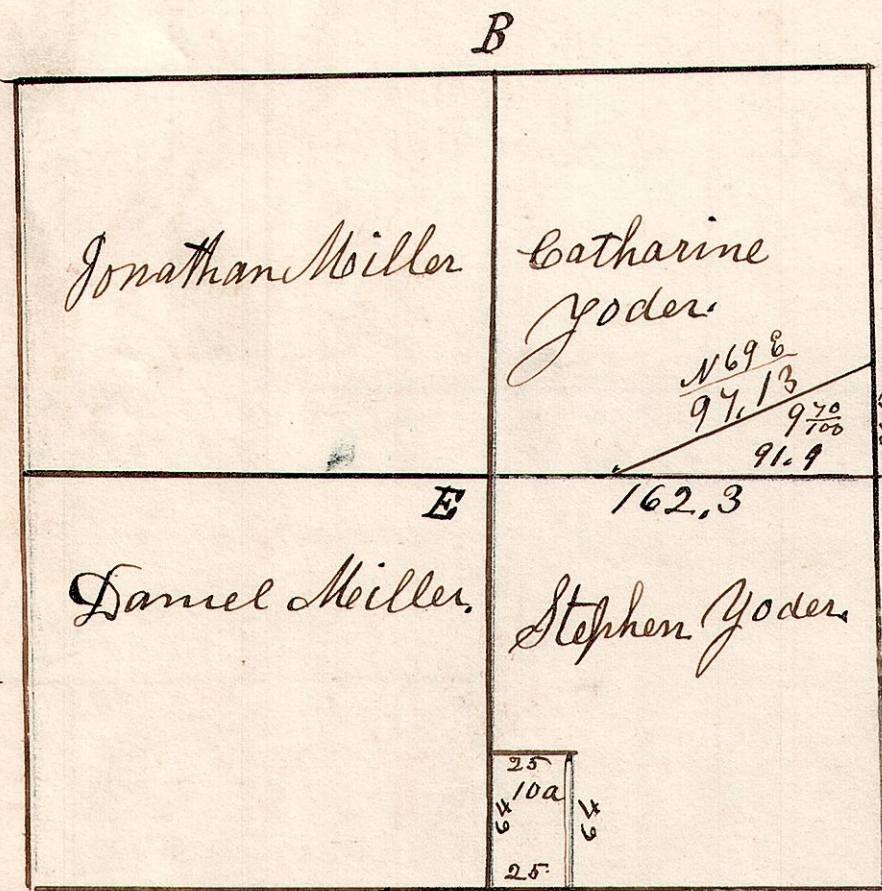 B
Jonathan Miller
Catharine
Yoder.
N 69 E
97.13
9 70/100
91.9
E
162,3
Daniel Miller.
Stephen Yoder.
25
10a
64
64
25